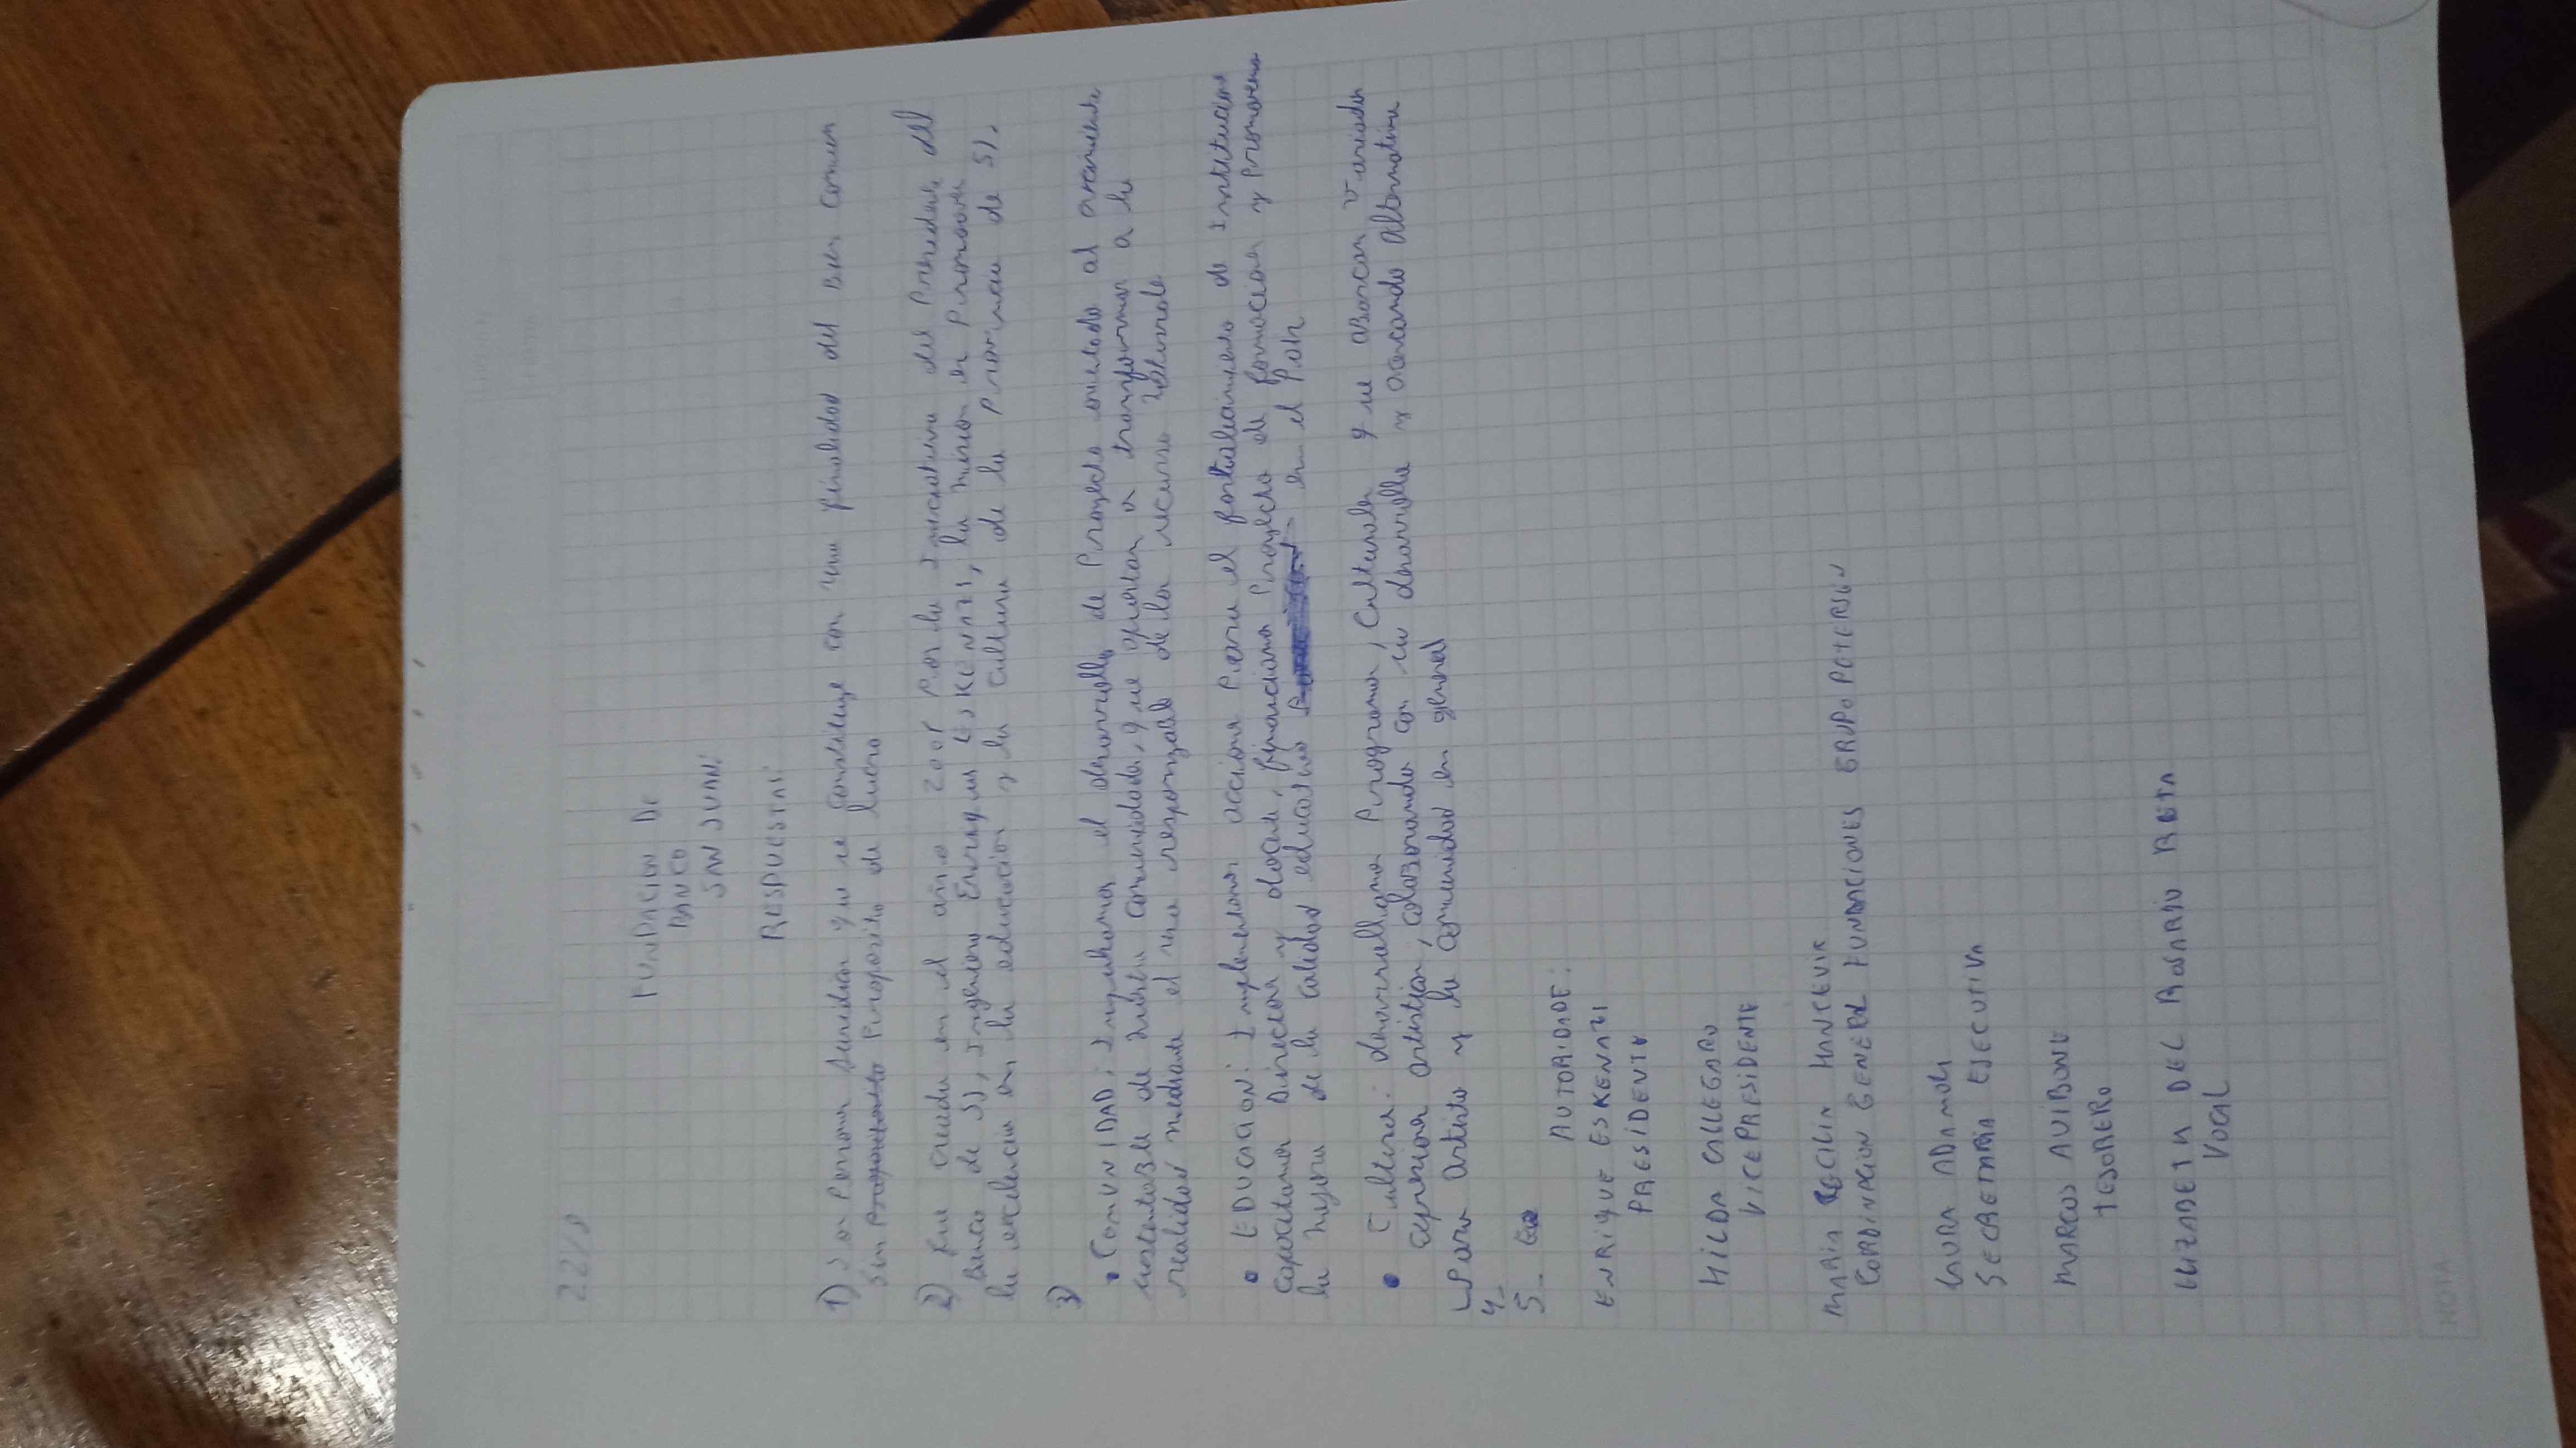 22/8
FUNDACION DE
BANCO
SAN JUAN:
RESPUESTAS:
1) Son Personas Juridicas que se constituye con una finalidad del Bien comun
Sin Proposito de lucro
2) fue creada en el año por la Iniciativa del Presidente del
Banco de SJ, Ingeniero Enrique ESKENAZI, la mision es Promover
la excelencia en la educacion y la Cultura de la Provincia de SJ.
3)
• COMUNIDAD: Impulsamos el desarrollo de Proyecto orientado al creciente
sustentable de nuestra comunidades, que apuntan a transformar a la
realidad mediante el uso responsable de los recursos
• EDUCACION: Implementamos acciones Para el fortalecimiento de Instituciones
Capacitamos Directores y docentes, financiamos Proyecto de formacion y Promovemos
la mejora de la calidad educativo en el Pais
• Cultura: desarrollamos Programas Culturales que abarcan variadas
Expresiones artisticas, colaborando con su desarrollo y acercando alternativa
Para artista y la comunidad en general
4-
5-
AUTORIDADE:
ENRIQUE ESKENAZI
PRESIDENTE
HILDA CALLEGARO
VICEPRESIDENTE
MARIA CECILIA HANCEVIK
CORDINACION GENERAL FUNDACIONES GRUPO PETERSEN
LAURA ADAMOLI
SECRETARIA EJECUTIVA
MARCOS AUIBONE
TESORERO
ELIZABETH DEL ROSARIO RETA
VOCAL
NOTA